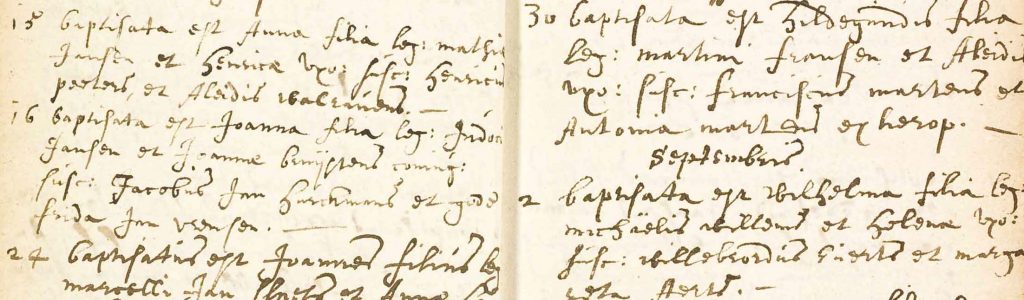 15 baptisata est Anna filia leg: mathi
Jansen et Henricæ uxo: susc: Henricus
peeters, et Aleidis walravens. —
16 baptisata est Joanna filia leg: Judoci
Jansen et Joannæ bruijstens coniug:
susc: Jacobus Jan Hurckmans et gode
frida Jan vrensen. —
24 baptisatus est Joannes filius leg
marcelli Jan et Annæ
30 baptisata est Hildegundis filia
leg: martini fransen et Aleidis
uxo: susc: franciscus martens et
Antonia martens ex herop. —
Septembris
2 baptisata est wilhelma filia leg:
michaëlis willems et Helenæ uxo:
susc: willebrordus Evertz et marga
reta Aerts. —